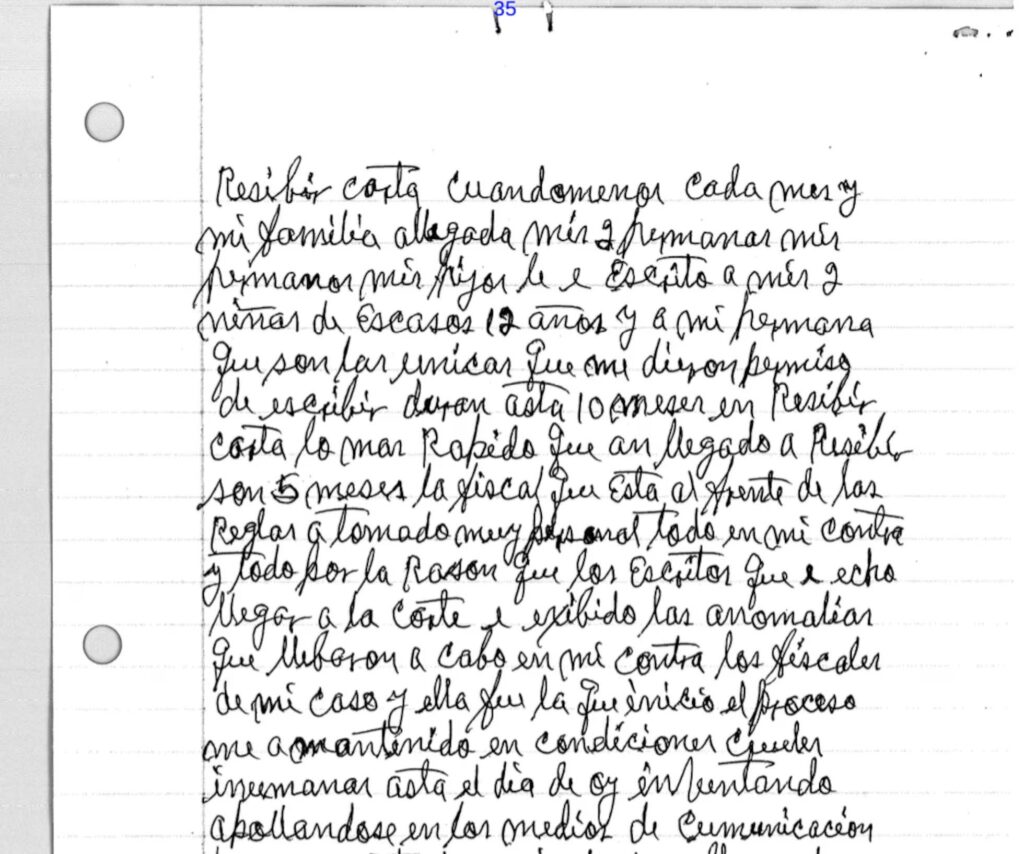 35
Resibir carta cuandomenos cada mes y
mi familia allegada mis 2 hermanas mis
hermanos mis hijos le e Escrito a mis 2
niñas de Escasos 12 años y a mi hermana
que son las unicas que me dieron permiso
de escribir duran asta 10 meses en Resibir
carta lo mas Rapido que an llegado a Resibir
son 5 meses la fiscal que Esta al frente de las
Reglas a tomado muy personal todo en mi contra
y todo por la Rason que los Escritos que e echo
llegar a la Corte e exibido las anomalias
que llebaron a cabo en mi contra los fiscales
de mi caso y ella fue la que inicio el proceso
me a mantenido en condiciones crueles
inumanas asta el dia de oy inbentando
apollandose en los medios de Cumunicación